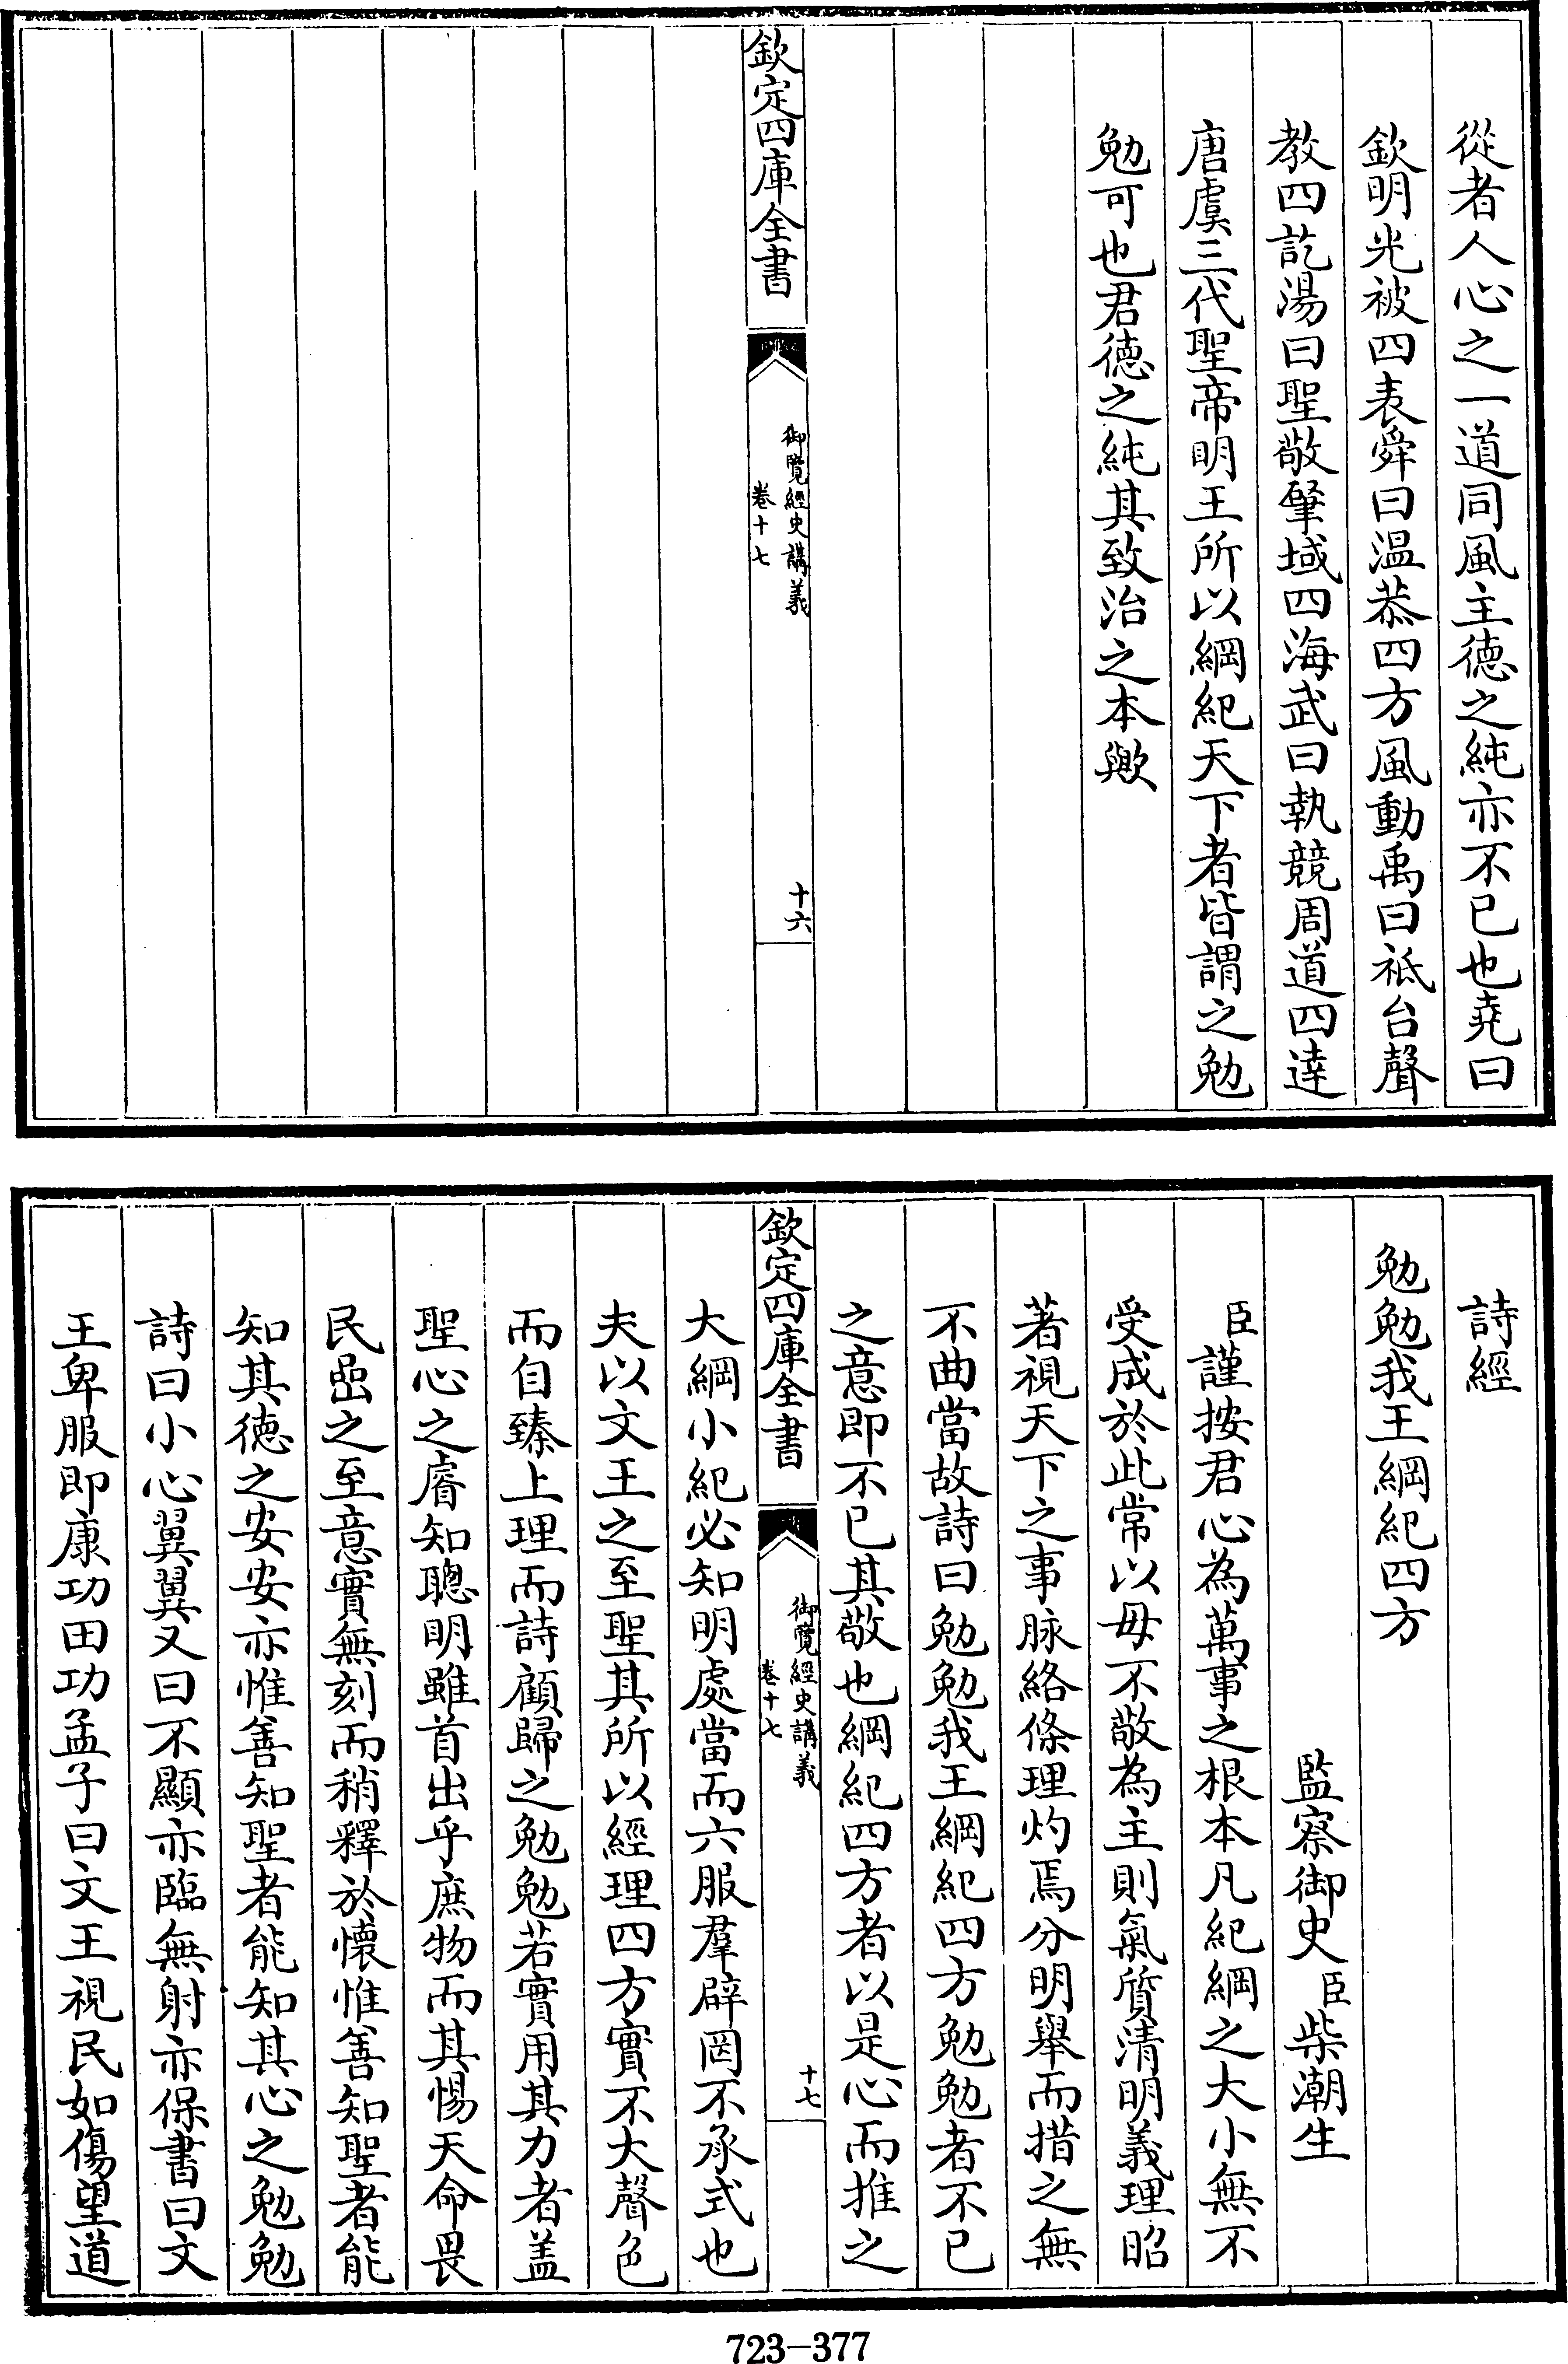 從者人心之一道同風主德之純亦不已也堯曰
欽明光被四表舜曰温恭四方風動禹曰祗台聲
教四訖湯曰聖敬肇域四海武曰執競周道四達
唐虞三代聖帝明王所以綱紀天下者皆謂之勉
勉可也君德之純其致治之本歟
欽定四庫全書
御覽經史講義
卷十七
十六
詩經
勉勉我王綱紀四方
監察御史臣柴潮生
臣謹按君心為萬事之根本凡紀綱之大小無不
受成於此常以毋不敬為主則氣質清明義理昭
著視天下之事脉絡條理灼焉分明舉而措之無
不曲當故詩曰勉勉我王綱紀四方勉勉者不已
之意即不已其敬也綱紀四方者以是心而推之
欽定四庫全書
御覽經史講義
卷十七
十七
大綱小紀必知明處當而六服羣辟罔不承式也
夫以文王之至聖其所以經理四方實不大聲色
而自臻上理而詩顧歸之勉勉若實用其力者盖
聖心之睿知聰明雖首出乎庶物而其惕天命畏
民嵒之至意實無刻而稍釋於懷惟善知聖者能
知其德之安安亦惟善知聖者能知其心之勉勉
詩曰小心翼翼又曰不顯亦臨無射亦保書曰文
王卑服即康功田功孟子曰文王視民如傷望道
723-377